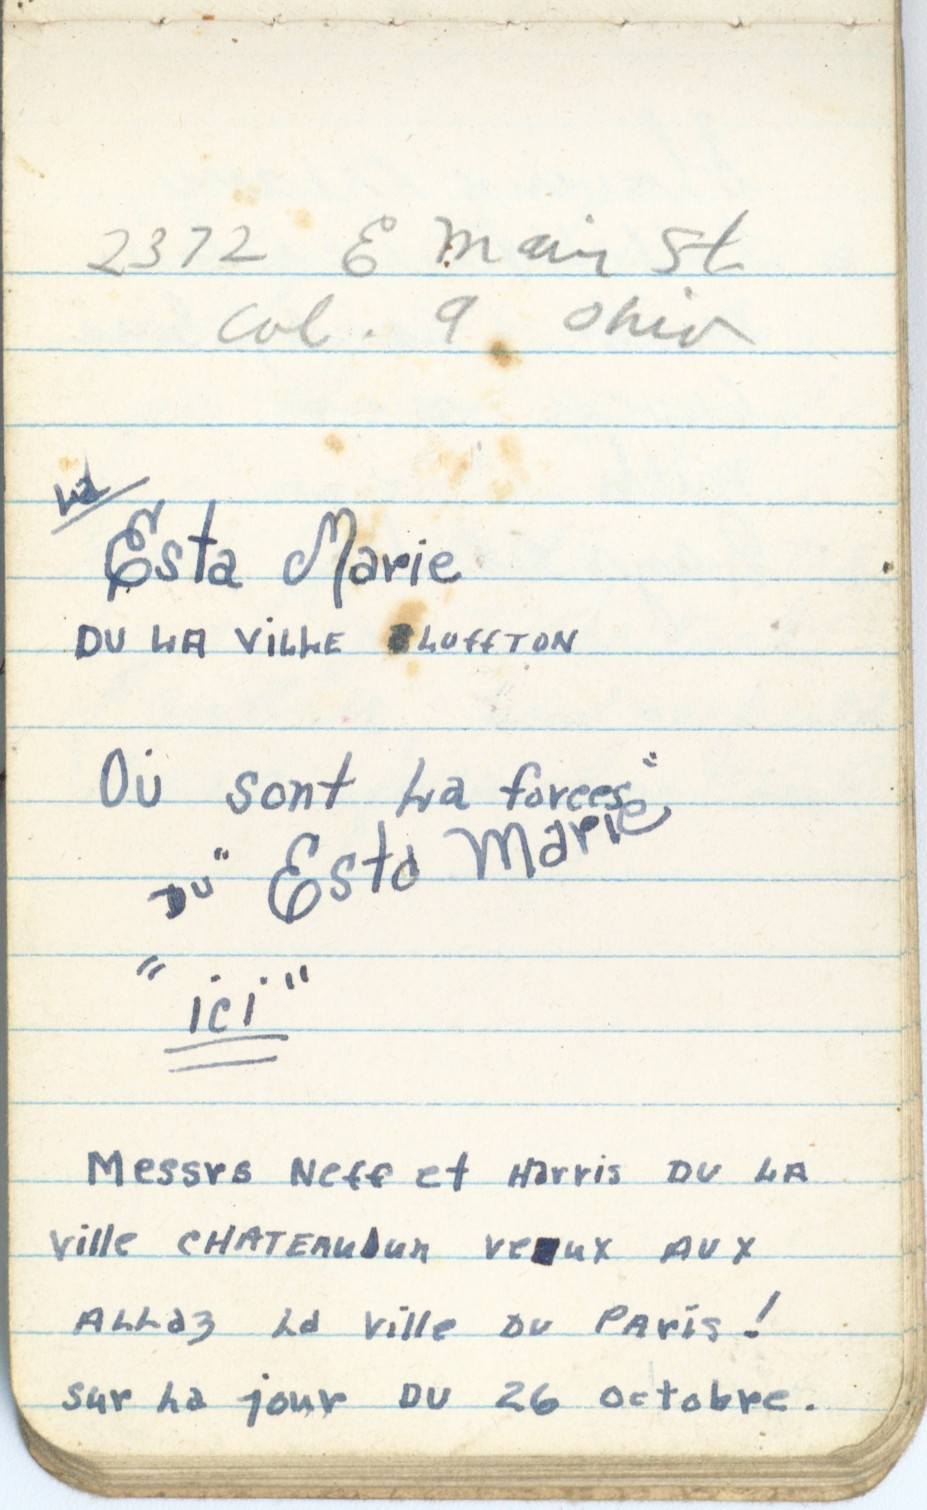 2372 E Main St
Col. 9 Ohio
La
Esta Marie
DU LA ViLLE BLUffTON
Où sont La forces"
DU" Esta Marie
"ici"
Messrs Neff et Harris DU LA
Ville CHATEAUDun veaux AUX
ALLaz La Ville DU PAris!
sur La jour DU 26 octobre.